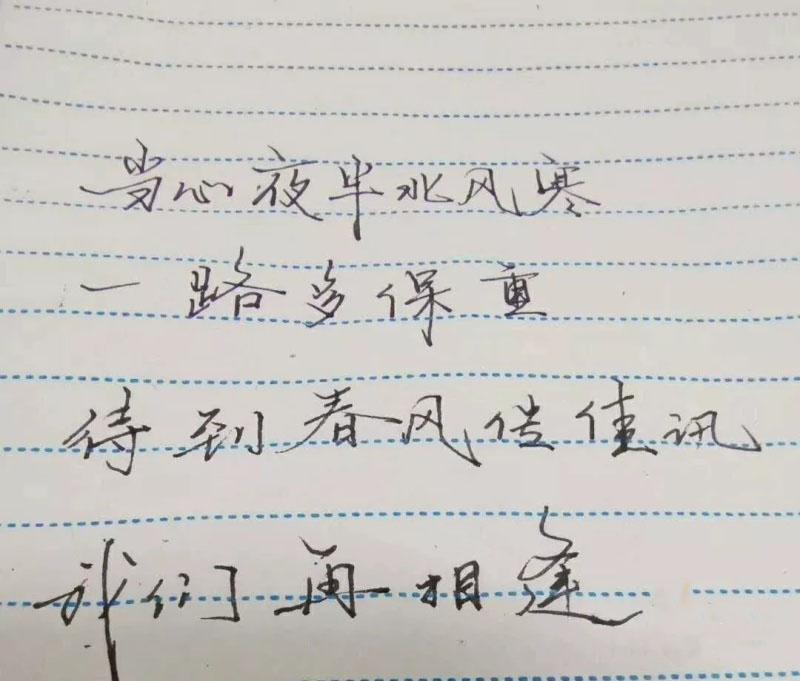 当心夜半北风寒
一路多保重
待到春风传佳讯
我们再相逢